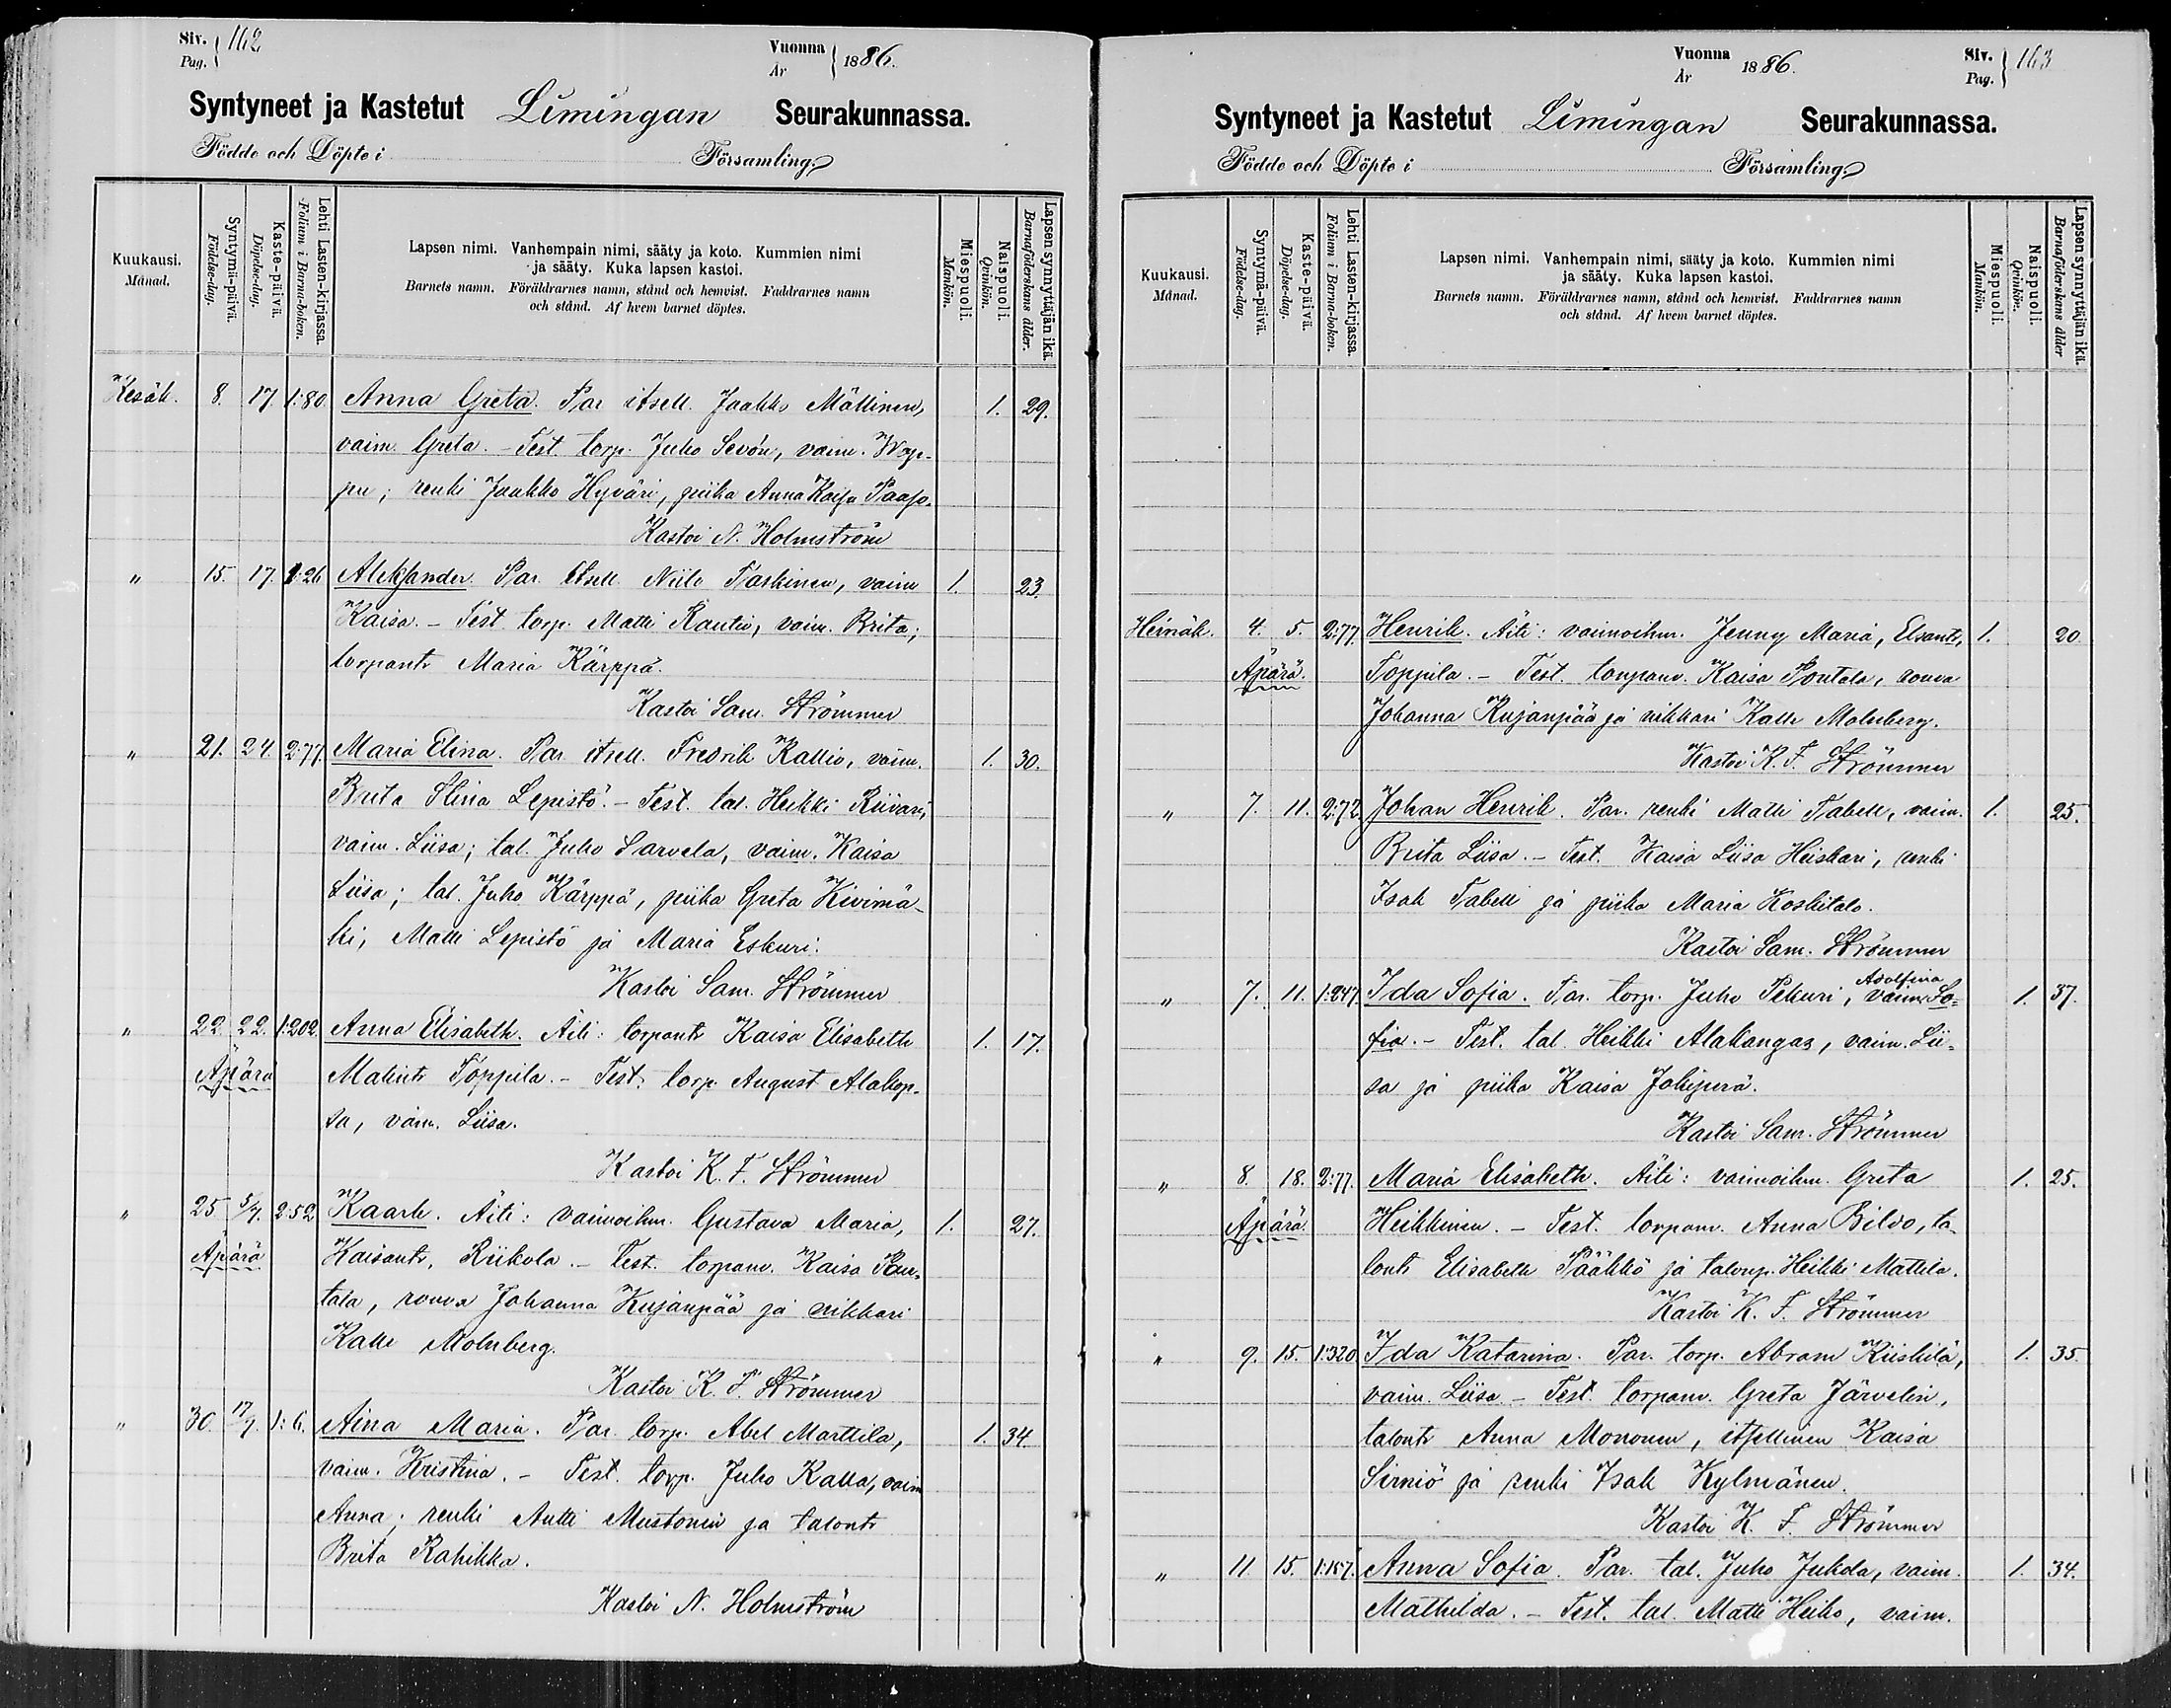 Siv. 162
Pag.
Vuonna 1886.
År
Syntyneet ja Kastetut Limingan Seurakunnassa.
Födde och Döpte i Församling.
Kuukausi.
Månad.
Syntymä-päivä.
Födelse-dag.
Kaste-päivä.
Döpelse-dag.
Lehti Lasten-kirjassa.
Folium i Barna-boken.
Lapsen nimi. Vanhempain nimi, sääty ja koto. Kummien nimi
ja sääty. Kuka lapsen kastoi.
Barnets namn. Föräldrarnes namn, stånd och hemvist. Faddrarnes namn
och stånd. Af hvem barnet döptes.
Miespuoli.
Mankön.
Naispuoli.
Qvinkön.
Lapsen synnyttäjän ikä.
Barnaföderskans ålder.
Kesäk. 8. 17. 1:80 Anna Greta. Par itsell. Jaakko Mällinen, 1. 29.
vaim. Greta. - Test. torp. Juho Sevón, vaim. Wap-
pu; renki Jaakko Hyväri, piika Anna Kaisa Paaso.
Kastoi N. Holmström
" 15. 17. 1:26 Aleksander. Par. Itsell. Niilo Taskinen, vaim 1. 23.
Kaisa. - Test torp. Matti Rautio, vaim. Brita;
torpantr Maria Kärppä.
Kastoi Sam. Strömmer
" 21. 24. 2:77. Maria Elina. Par itsell. Fredrik Kallio, vaim. 1. 30.
Brita Stina Lepistö. - Test. tal. Heikki Riivari,
vaim. Liisa; tal. Juho Sarvela, vaim. Kaisa
Liisa; tal. Juho Kärppä, piika Greta Kivimä-
ki, Matti Lepistö ja Maria Eskuri.
Kastoi Sam. Strömmer
" 22. 22. 1:202. Anna Elisabeth. Äiti: torpantr Kaisa Elisabeth 1. 17.
Äpärä Matintr Toppila. - Test. torp. August Alakop-
sa, vaim. Liisa.
Kastoi K. F. Strömmer
" 25 5/7. 2:52 Kaarle. Äiti: vaimoihm. Gustava Maria, 1. 27.
Äpärä Kaisantr, Riikola. - Test. torpanv. Kaisa Pou-
tala, rouva Johanna Kujanpää ja nikkari
Kalle Molnberg.
Kastoi K. F. Strömmer
" 30. 17/7. 1:6. Aina Maria. Par. torp. Abel Marttila, 1. 34.
vaim. Kristina. - Test. torp. Juho Kalla, vaim
Anna; renki Antti Mustonen ja talontr
Brita Rahikka.
Kastoi N. Holmström
Vuonna 1886.
År
Siv. 163
Pag.
Syntyneet ja Kastetut Limingan Seurakunnassa.
Födde och Döpte i Församling.
Kuukausi.
Månad.
Syntymä-päivä.
Födelse-dag.
Kaste-päivä.
Döpelse-dag.
Lehti Lasten-kirjassa.
Folium i Barna-boken.
Lapsen nimi. Vanhempain nimi, sääty ja koto. Kummien nimi
ja sääty. Kuka lapsen kastoi.
Barnets namn. Föräldrarnes namn, stånd och hemvist. Faddrarnes namn
och stånd. Af hvem barnet döptes.
Miespuoli.
Mankön.
Naispuoli.
Qvinkön.
Lapsen synnyttäjän ikä.
Barnaföderskans ålder
Heinäk. 4. 5. 2:77. Henrik. Äiti: vaimoihm. Jenny Maria, Elsantr, 1. 20.
Äpärä. Toppila. - Test. torpanv. Kaisa Poutala, rouva
Johanna Kujanpää ja nikkari Kalle Molnberg.
Kastoi K. F. Strömmer
" 7. 11. 2:72. Johan Henrik. Par. renki Matti Tabell, vaim. 1. 25.
Brita Liisa. - Test. Kaisa Liisa Heiskari, renki
Isak Tabell ja piika Maria Koskitalo.
Kastoi Sam. Strömmer
Adolfina
" 7. 11. 1:247. Ida Sofia. Par. torp. Juho Pekuri, vaim. So- 1. 37.
fia. - Test. tal. Heikki Alakangas, vaim. Lii-
sa ja piika Kaisa Jokiperä.
Kastoi Sam. Strömmer
" 8. 18. 2:77. Maria Elisabeth. Äiti: vaimoihm. Greta 1. 25.
Äpärä. Heikkinen. - Test. torpanv. Anna Bildo, ta-
lontr Elisabeth Pääkkö ja talonp. Heikki Mattila.
Kastoi K. F. Strömmer
" 9. 15. 1:320. Ida Katarina. Par. torp. Abram Kiiskilä, 1. 35.
vaim. Liisa - Test. torpanv. Greta Järvelin,
talontr Anna Mononen, itsellinen Kaisa
Sirniö ja renki Isak Kylmänen.
Kastoi K. F. Strömmer
" 11. 15. 1:157. Anna Sofia. Par. tal. Juho Jukola, vaim. 1. 34.
Mathilda. - Test. tal. Matti Heiko, vaim.